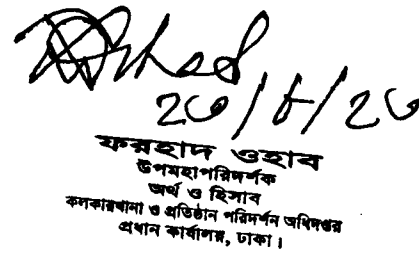 ২৩/৮/২৩
ফরহাদ ওহাব
উপমহাপরিদর্শক
অর্থ ও হিসাব
কলকারখানা ও প্রতিষ্ঠান পরিদর্শন অধিদপ্তর
প্রধান কার্যালয়, ঢাকা।